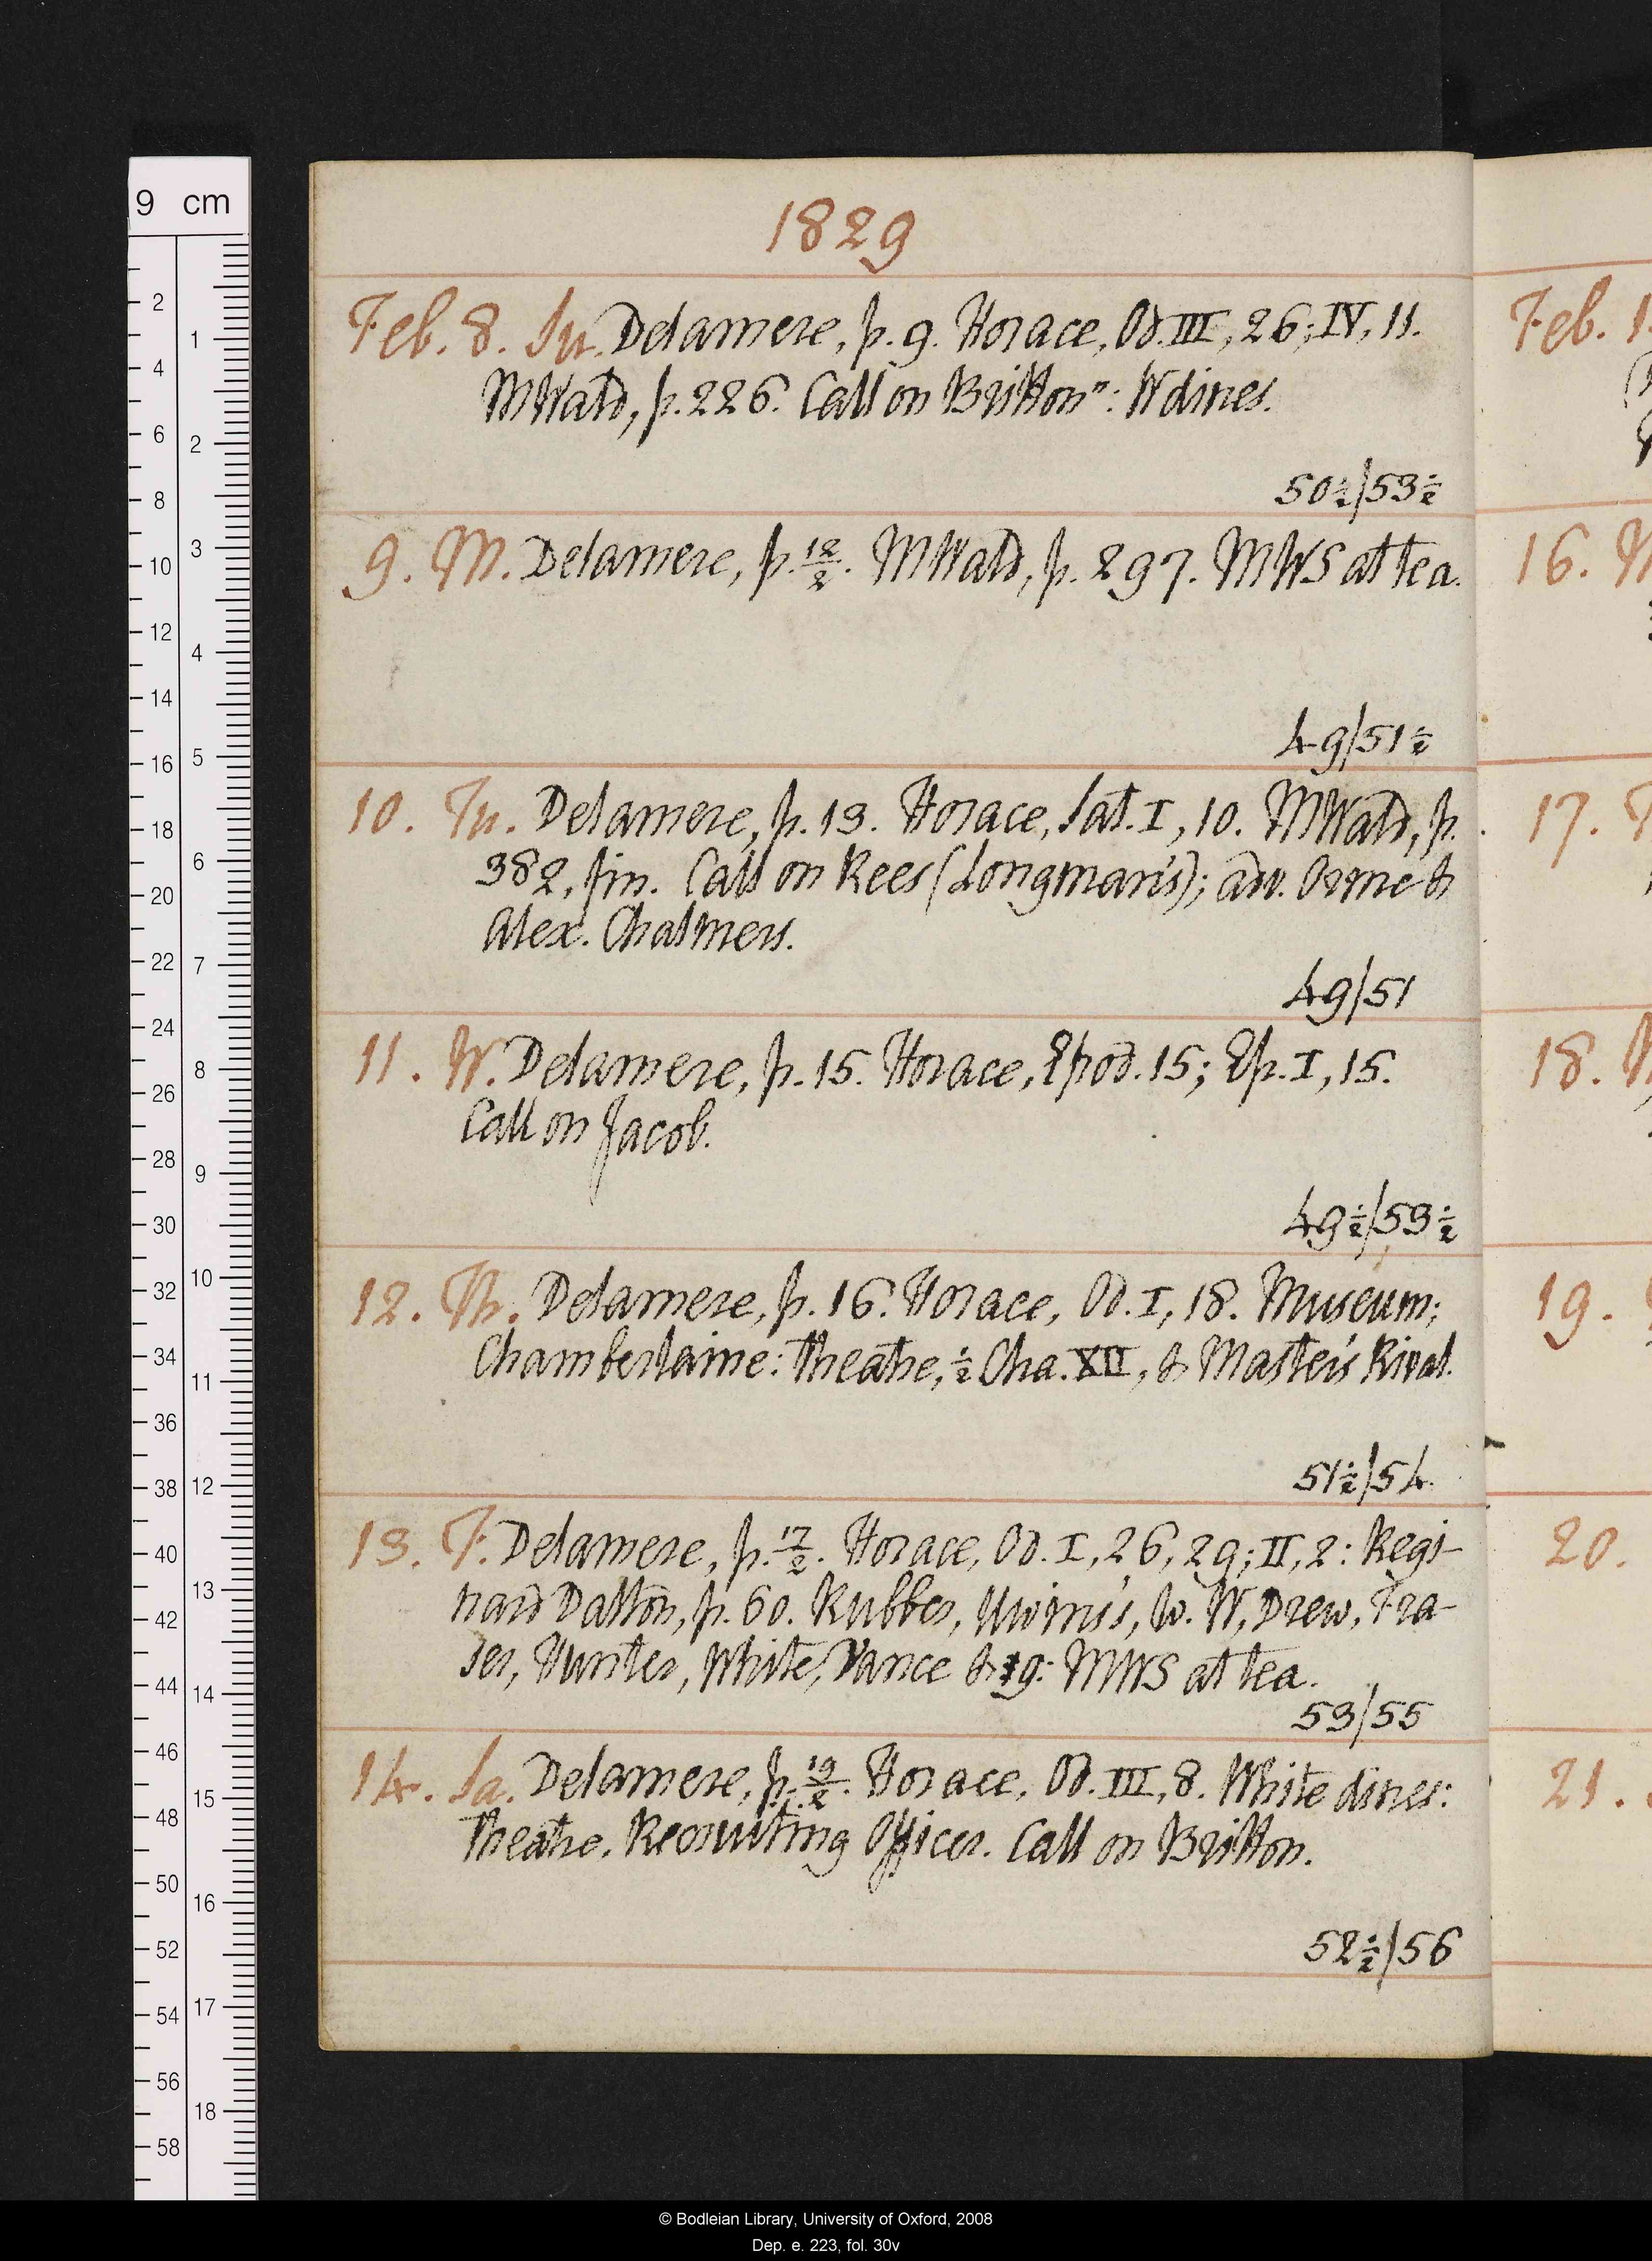 9 cm
1829
Feb. 8. Su. Delamere, p. 9. Horace, Od. III, 26; IV, 11.
MWald, p. 226. Call on Britton n: W dines.
50½/53½
9. M. Delamere, p. 12/2. MWald, p. 297. MWS at tea.
49/51½
10. Tu. Delamere, p. 13. Horace, Sat. I, 10. MWald, p.
382, fin. Call on Rees (Longman's); adv. Orme &
Alex. Chalmers.
49/51
11. W. Delamere, p. 15. Horace, Epod. 15; Ep. I, 15.
Call on Jacob.
49½/53½
12. Th. Delamere, p. 16. Horace, Od. I, 18. Museum;
Chamberlaine: theatre, ½ Cha. XII, & Master's Rival.
51½/54
13. F. Delamere, p. 17/2. Horace, Od. I, 26, 29; II, 2: Regi-
nard Dalton, p. 60. Rubber, Uwins's, w. W, Drew, Fra-
ser, Hunter, White, Vance & 19: MWS at tea.
53/55
14. Sa. Delamere, p. 19/2. Horace, Od. III, 8. White dines:
theatre, Recruiting Officer. Call on Britton.
52½/56
Feb. 1
16. M
17. T
18. W
19.
20.
21.
© Bodleian Library, University of Oxford, 2008
Dep. e. 223, fol. 30v